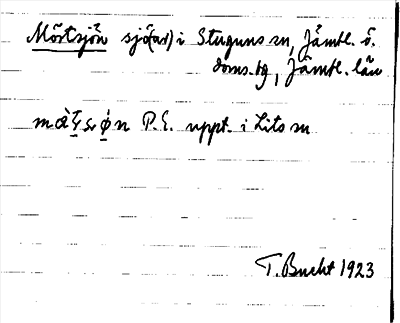 Mörtsjön sjö(ar) i Stuguns sn, Jämtl. ö.
doms.sg, Jämtl. län
P.E. uppt. i Lits sn
T. Bucht 1923